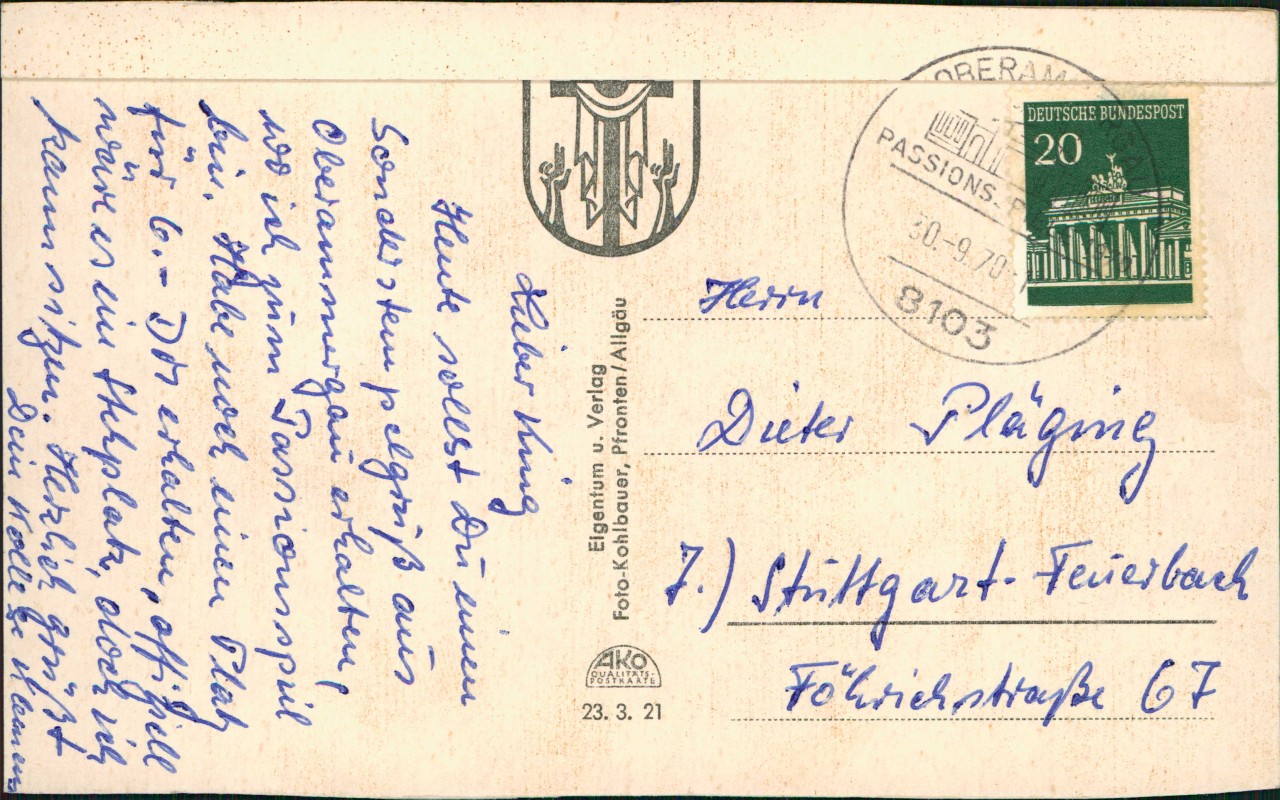 Lieber König
Heute sollst Du einen
Sonderstempelgruß aus
Oberammergau erhalten,
wo ich zum Passionsspiel
bin. Habe noch einen Platz
für 6.- DM erhalten, offiziell
wäre es ein Stehplatz, doch ich
kann sitzen. Herzlich grüßt
Dein Kollege
Eigentum u. Verlag
Foto-Kohlbauer, Pfronten/Allgäu
AKO
QUALITÄTS-
POSTKARTE
23. 3. 21
OBERAM
PASSIONS-
30.-9.70
8103
DEUTSCHE BUNDESPOST
20
Herrn
Dieter Pläging
7.) Stuttgart-Feuerbach
Föhrichstraße 67